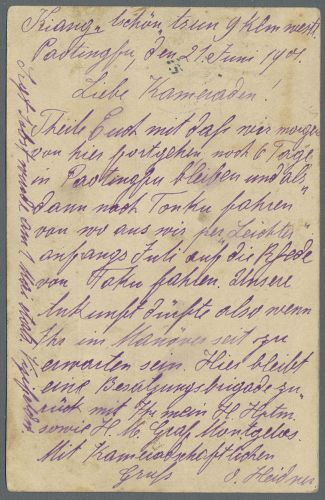 Kiang "Tschön", zirm 9 klm westl.
Paotingfu, den 21. Juni 1901.
Liebe Kameraden!
Theile Euch mit daß wir morgen
von hier fortgehen noch 6 Tage
in Paotingfu bleiben und als
dann nach Tonku fahren
von wo aus wir per "Leichter"
anfangs Juli auf die Rhede
von Taku fahren. Unsere
Ankunft dürfte also wenn
Ihr im Manöver seit zu
erwarten sein. Hier bleibt
eine Besatzungsbrigade zu
rück mit Ihr mein H. Holm
sowie H. Graf Montgelas.
Mit Kameradschaftlichen
Gruß
O. Heidner